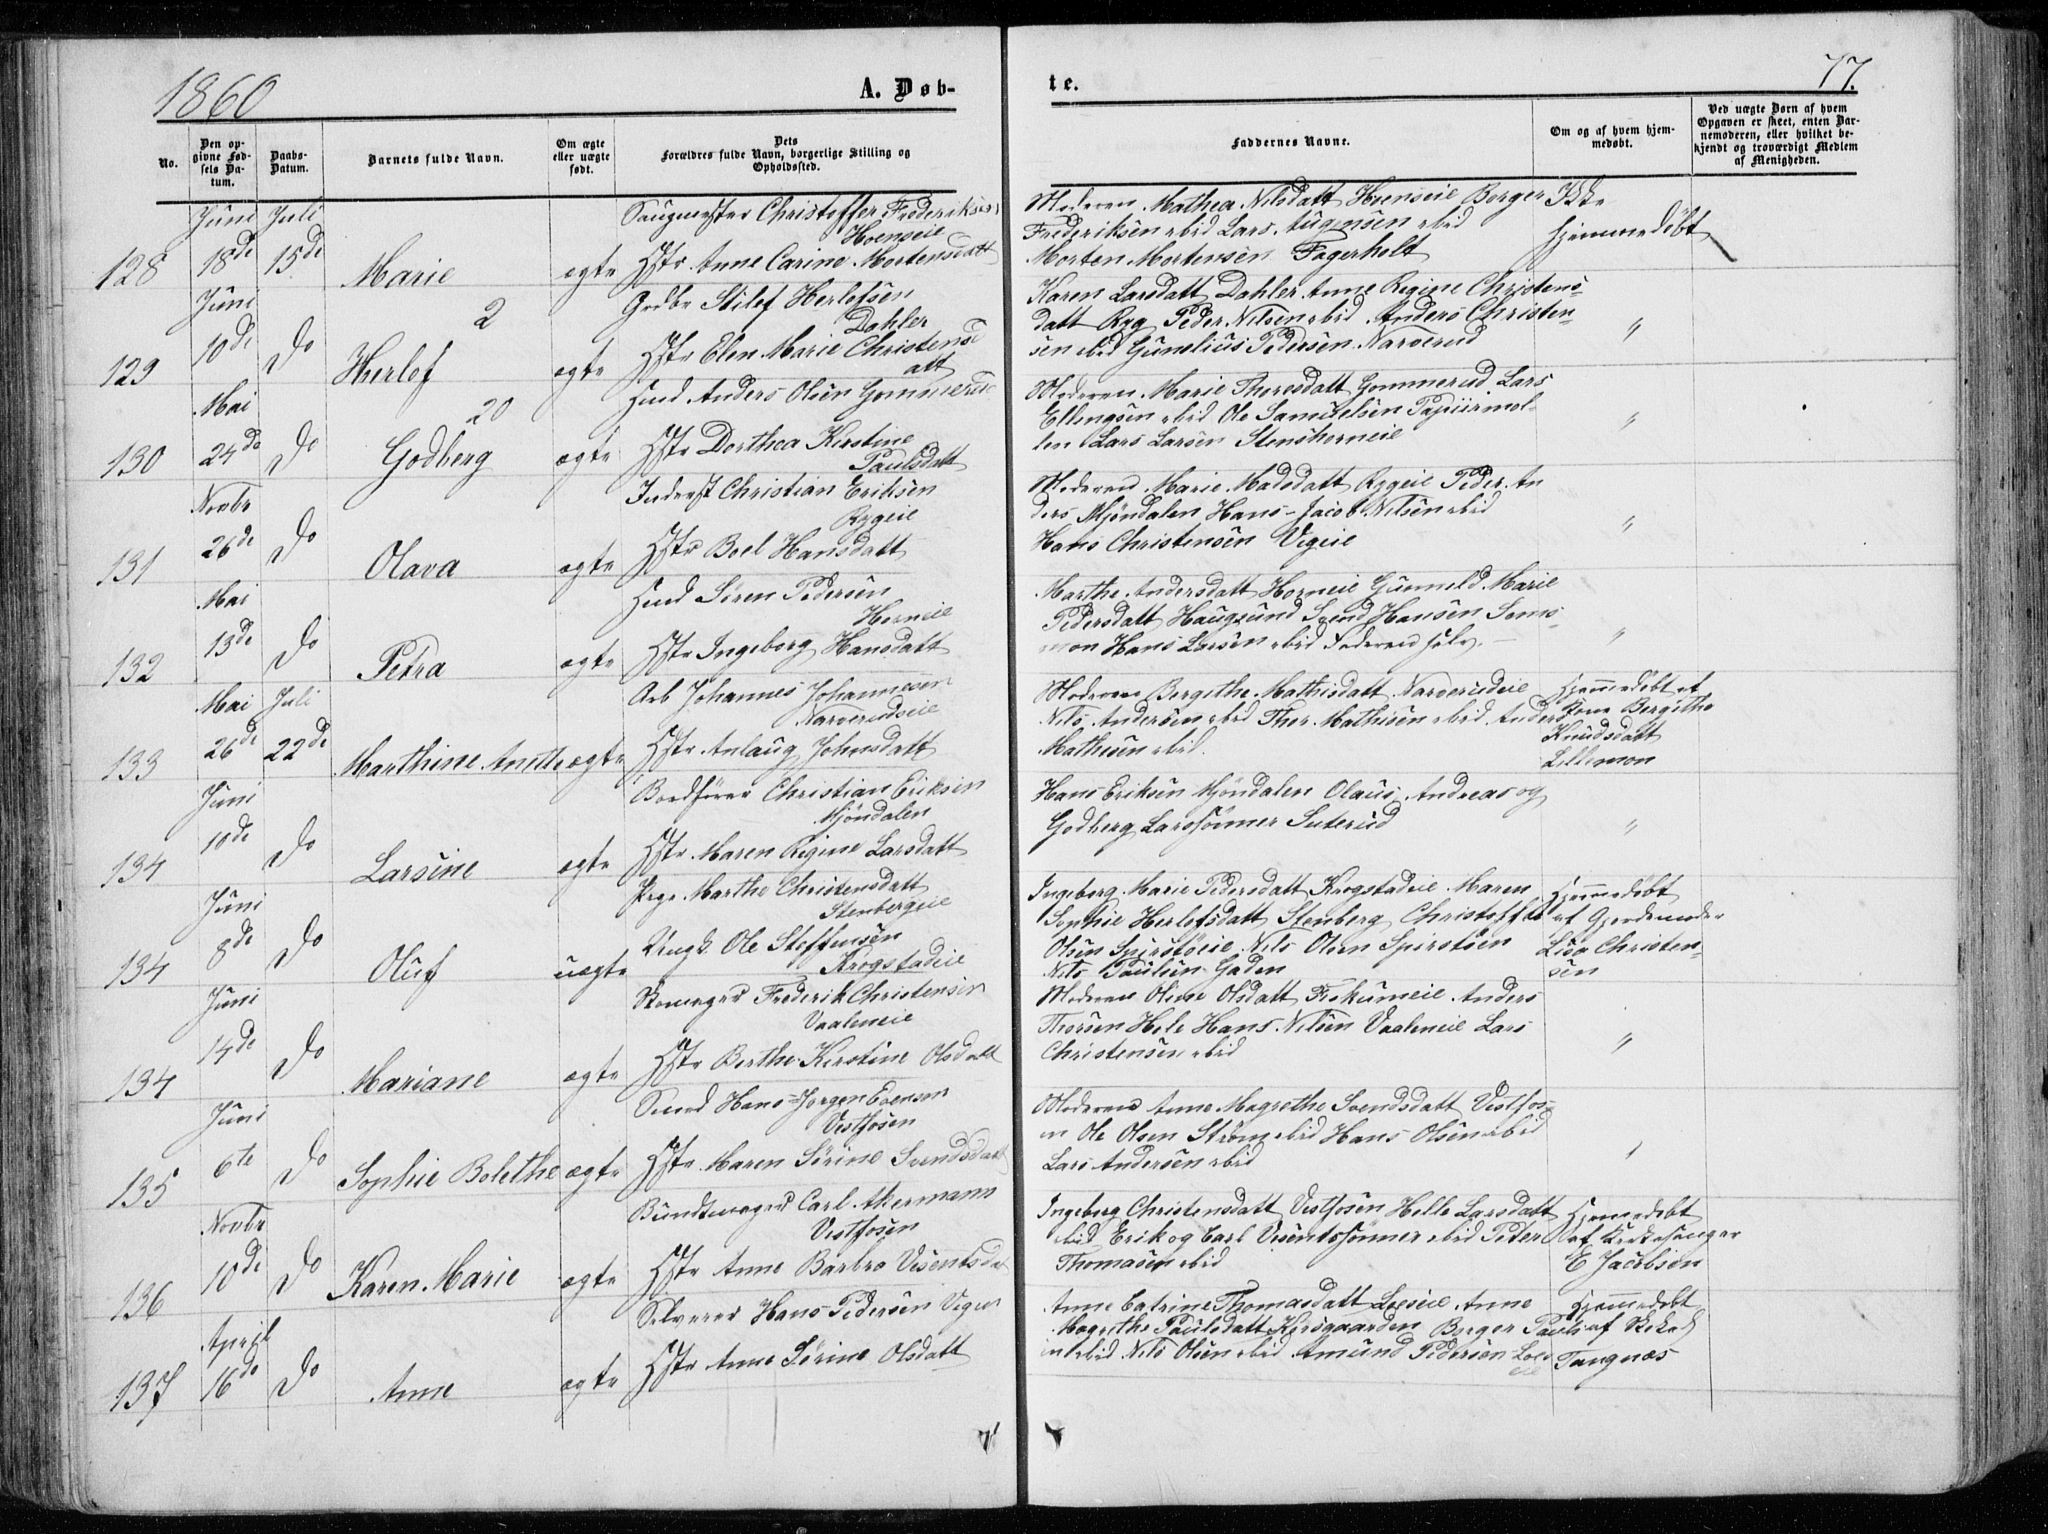 1860
A. Døb-
te.
77.
No.
Den op-
givne Fød-
sels Da-
tum.
Daabs-
Datum.
Barnets fulde Navn.
Om ægte
eller uægte
født.
Dets
Forældres fulde Navn, borgerlige Stilling og
Opholdssted.
Faddernes Navne.
Om og af hvem hjem-
medøbt.
Ved uægte Børn af hvem
Opgaven er skeet, enten Bar-
nemoderen, eller hvilket be-
kjendt og troværdigt Medlem
af Menigheden.
Juni Juli
128 18de 15de Marie ægte
Saugmester Christoffer Frederiksen
Hoenseie
Hstr Anne Carine Mortensdatt
Moderen Mathea Nilsdatt Hunseie Borger
Frederiksen ibid Lars Augensen ibid
Morten Mortensen Fagerholt
Ikke
hjemmedöbt
Juni
129 10de Do Herlof ægte
2
Gdbr Stilef Herlofsen
Dahler
Hstr Elen Marie Christensd
att
Karen Larsdatt Dahler Anne Regine Christens-
datt Ryg Peder Nilsen ibid Anders Christen-
sen ibid Gunelius Pedersen Narverud
"
Mai
130 24de Do Godberg ægte
20
Husd Anders Olsen Gommerud
Hstr Dorthea Kirstine
Paulsdatt
Moderen Marie Thoresdatt Gommerud Lars
Ellingsen ibid Ole Samuelsen Papiirmøl-
len Lars Larsen Stenshorneie
"
Novbr
131 26de Do Olava ægte
Inderst Christian Eriksen
Rygeie
Hstr Boel Hansdatt
Moderen Marie Madsdatt Rygeie Peder An
ders Mjöndalen Hans-Jacob Nilsen ibid
Hans Christensen Vegeie
"
Mai
132 13de Do Petra ægte
Husd Sören Pedersen
Horneie
Hstr Ingeborg Hansdatt
Marthe Andersdatt Horneie Gunneld Marie
Pedersdatt Haugsund Svend Hansen Sems-
mon Hans Larsen ibid Faderen selv.
"
Mai Juli
133 26de 22de Marthine Anette ægte
Arb Johannes Johannesen
Narverudseie
Hstr Anlaug Johnsdatt
Moderen Bergethe Mathisdatt Narverudeie
Nils Andersen ibid Thor Mathisen ibid Anders
Mathisen ibid.
Hjemmedøbt af
Kone Bergethe
Knudsdatt
Lillemon
Juni
134 10de Do Larsine ægte
Bordfører Christian Eriksen
Mjöndalen
Hstr Maren Regine Larsdatt
Hans Eriksen Mjöndalen Olaus, Andreas og
Godberg Larssönner Suterud
"
Juni
134 8de Do Oluf uægte
Pige Marthe Christensdatt
Stenbergeie
Ungk. Ole Steffensen
Krogstadeie
Ingeborg Marie Pedersdatt Krogstadeie Maren
Sophie Herlofsdatt Stenberg Christoffer
Olsen Spirstöeie Nils Olsen Spirstöen
Nils Paulsen Gaden
Hjemmedöbt
af Gjordemoder
Lisa Christen-
sen
Juni
134 14de Do Mariane ægte
Skomager Frederik Christensen
Vaaleneie
Hstr Berthe Kirstine Olsdatt
Moderen Oline Olsdatt Fiskumeie Anders
Thorsen Hele Hans Nilsen Vaaleneie Lars
Christensen ibid
"
Juni
135 6te Do Sophie Bolethe ægte
Smed Hans-Jørgen Evensen
Vestfosen
Hstr Maren Sörine Svendsdatt
Moderen Anne Magrethe Svendsdatt Vestfos-
en Ole Olsen Ström ibid Hans Olsen ibid
Lars Andersen ibid
"
Novbr
136 10de Do Karen Marie ægte
Bundtmager Carl Akermann
Vestfosen
Hstr Anne Barbro Visentsdatt
Ingeborg Christensdatt Vestfosen Helle Larsdatt
ibid Erik og Carl Visentssönner ibid Peter
Thomasen ibid
Hjemmedøbt
af Kirkesanger
E Jacobsen
April
137 16de Do Anne ægte
Selveier Hans Pedersen Vegeie
Hstr Anne Sörine Olsdatt
Anne Catrine Thomasdatt Loeseie Anne
Magrethe Paulsdatt Korsgaarden Borger Pauls
en ibid Nils Olsen ibid Amund Pedersen Loes
eie
Hjemmedøbt
af
Tangnæs